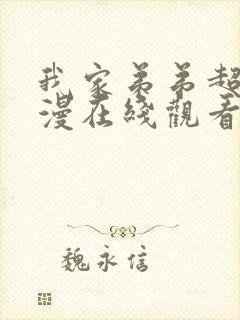 我家弟弟超
漫在綫觀看
魏永信